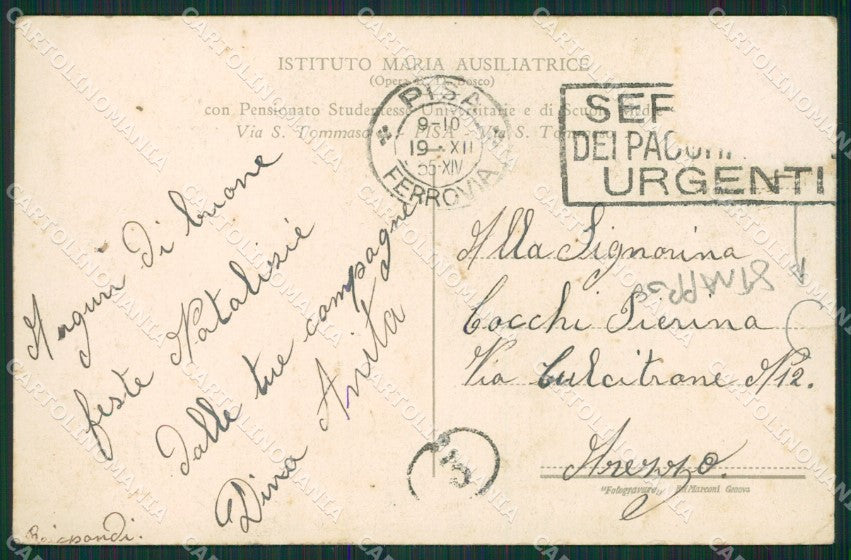 ISTITUTO MARIA AUSILIATRICE
(Opera D. Bosco)
con Pensionato Studentesse Universitarie e di Scuole Medie
Via S. Tommaso - PISA - Via S.
PISA
9-10
19-XII
35-XIV
FERROVIA
DEI PACCHI
URGENTI
Auguri di buone
feste Natalizie
dalle tue compagne
Dina Anita
Rispondi.
Alla Signorina
Cocchi Pierina
Via Culcitrone N12.
Arezzo.
STRAPPO
"Fotogravure" Marconi Genova
CARTOLINOMANIA